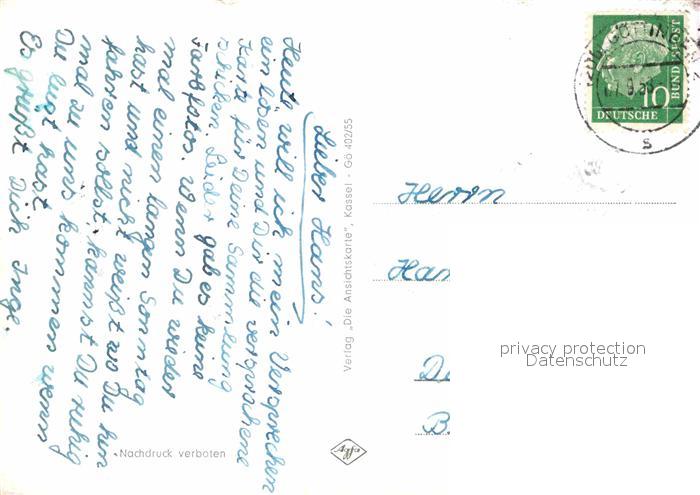 Lieber Hans!
Heute will ich mein Versprechen
ein lösen und Dir die versprochene
Karte für Deine Sammlung
schicken. Leider gab es keine
Farbfotos. Wenn Du wieder
mal einen langen Sonntag
hast und nicht weißt wo Du hin
fahren sollst, kannst Du ruhig
mal zu uns kommen wenn
Du lust hast
Es grüßt Dich Inge.
Verlag „Die Ansichtskarte", Kassel - Gö 402/55
Nachdruck verboten
Agfa
GÖTTIN
10
DEUTSCHE
BUNDESPOST
s
Herrn
Han
D
B.
privacy protection
Datenschutz